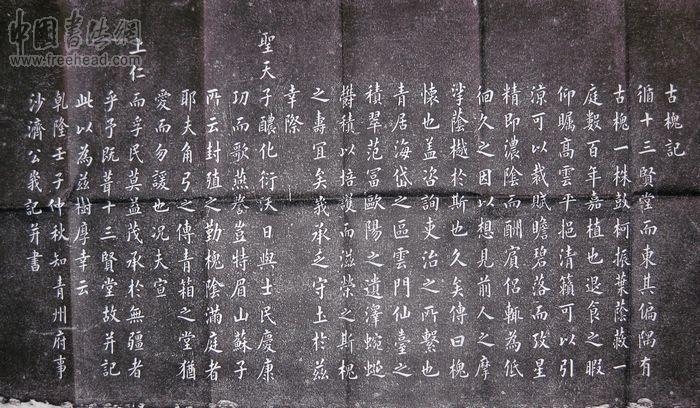 古槐記
循十三賢堂而東其偏隅有
古槐一株鼓柯振葉蔭蔽一
庭數百年嘉植也退食之暇
仰矚高雲平挹清籟可以引
涼可以裁賦瞻碧落而攷星
精即濃陰而酬賓侶輒為低
佪久之因以想見前人之摩
挲蔭樾於斯也久矣傳曰槐
懷也盖咨詢吏治之所繫也
青居海岱之區雲門仙臺之
積翠范富歐陽之遺澤蜿蜒
欝積以培護而滋榮之斯槐
之壽宜矣我承乏守土於茲
幸際
聖天子醲化衍沃日與士民慶康
功而歌燕譽豈特眉山蘇子
所云封殖之勤槐陰滿庭者
耶夫角弓之傳青箱之堂猶
愛而勿諼也況夫宣
上仁而孚民莫益茂承於無疆者
乎予既葺十三賢堂故并記
此以為茲樹厚幸云
乾隆壬子仲秋知青州府事
沙濟公峩記并書
中国書法網
www.freehead.com